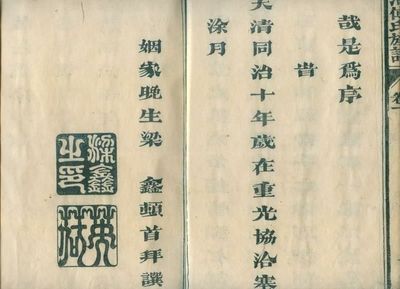 哉是爲序
旹
大清同治十年歲在重光協洽寎
涂月
姻家晚生梁　鑫頓首拜譔
梁鑫之印